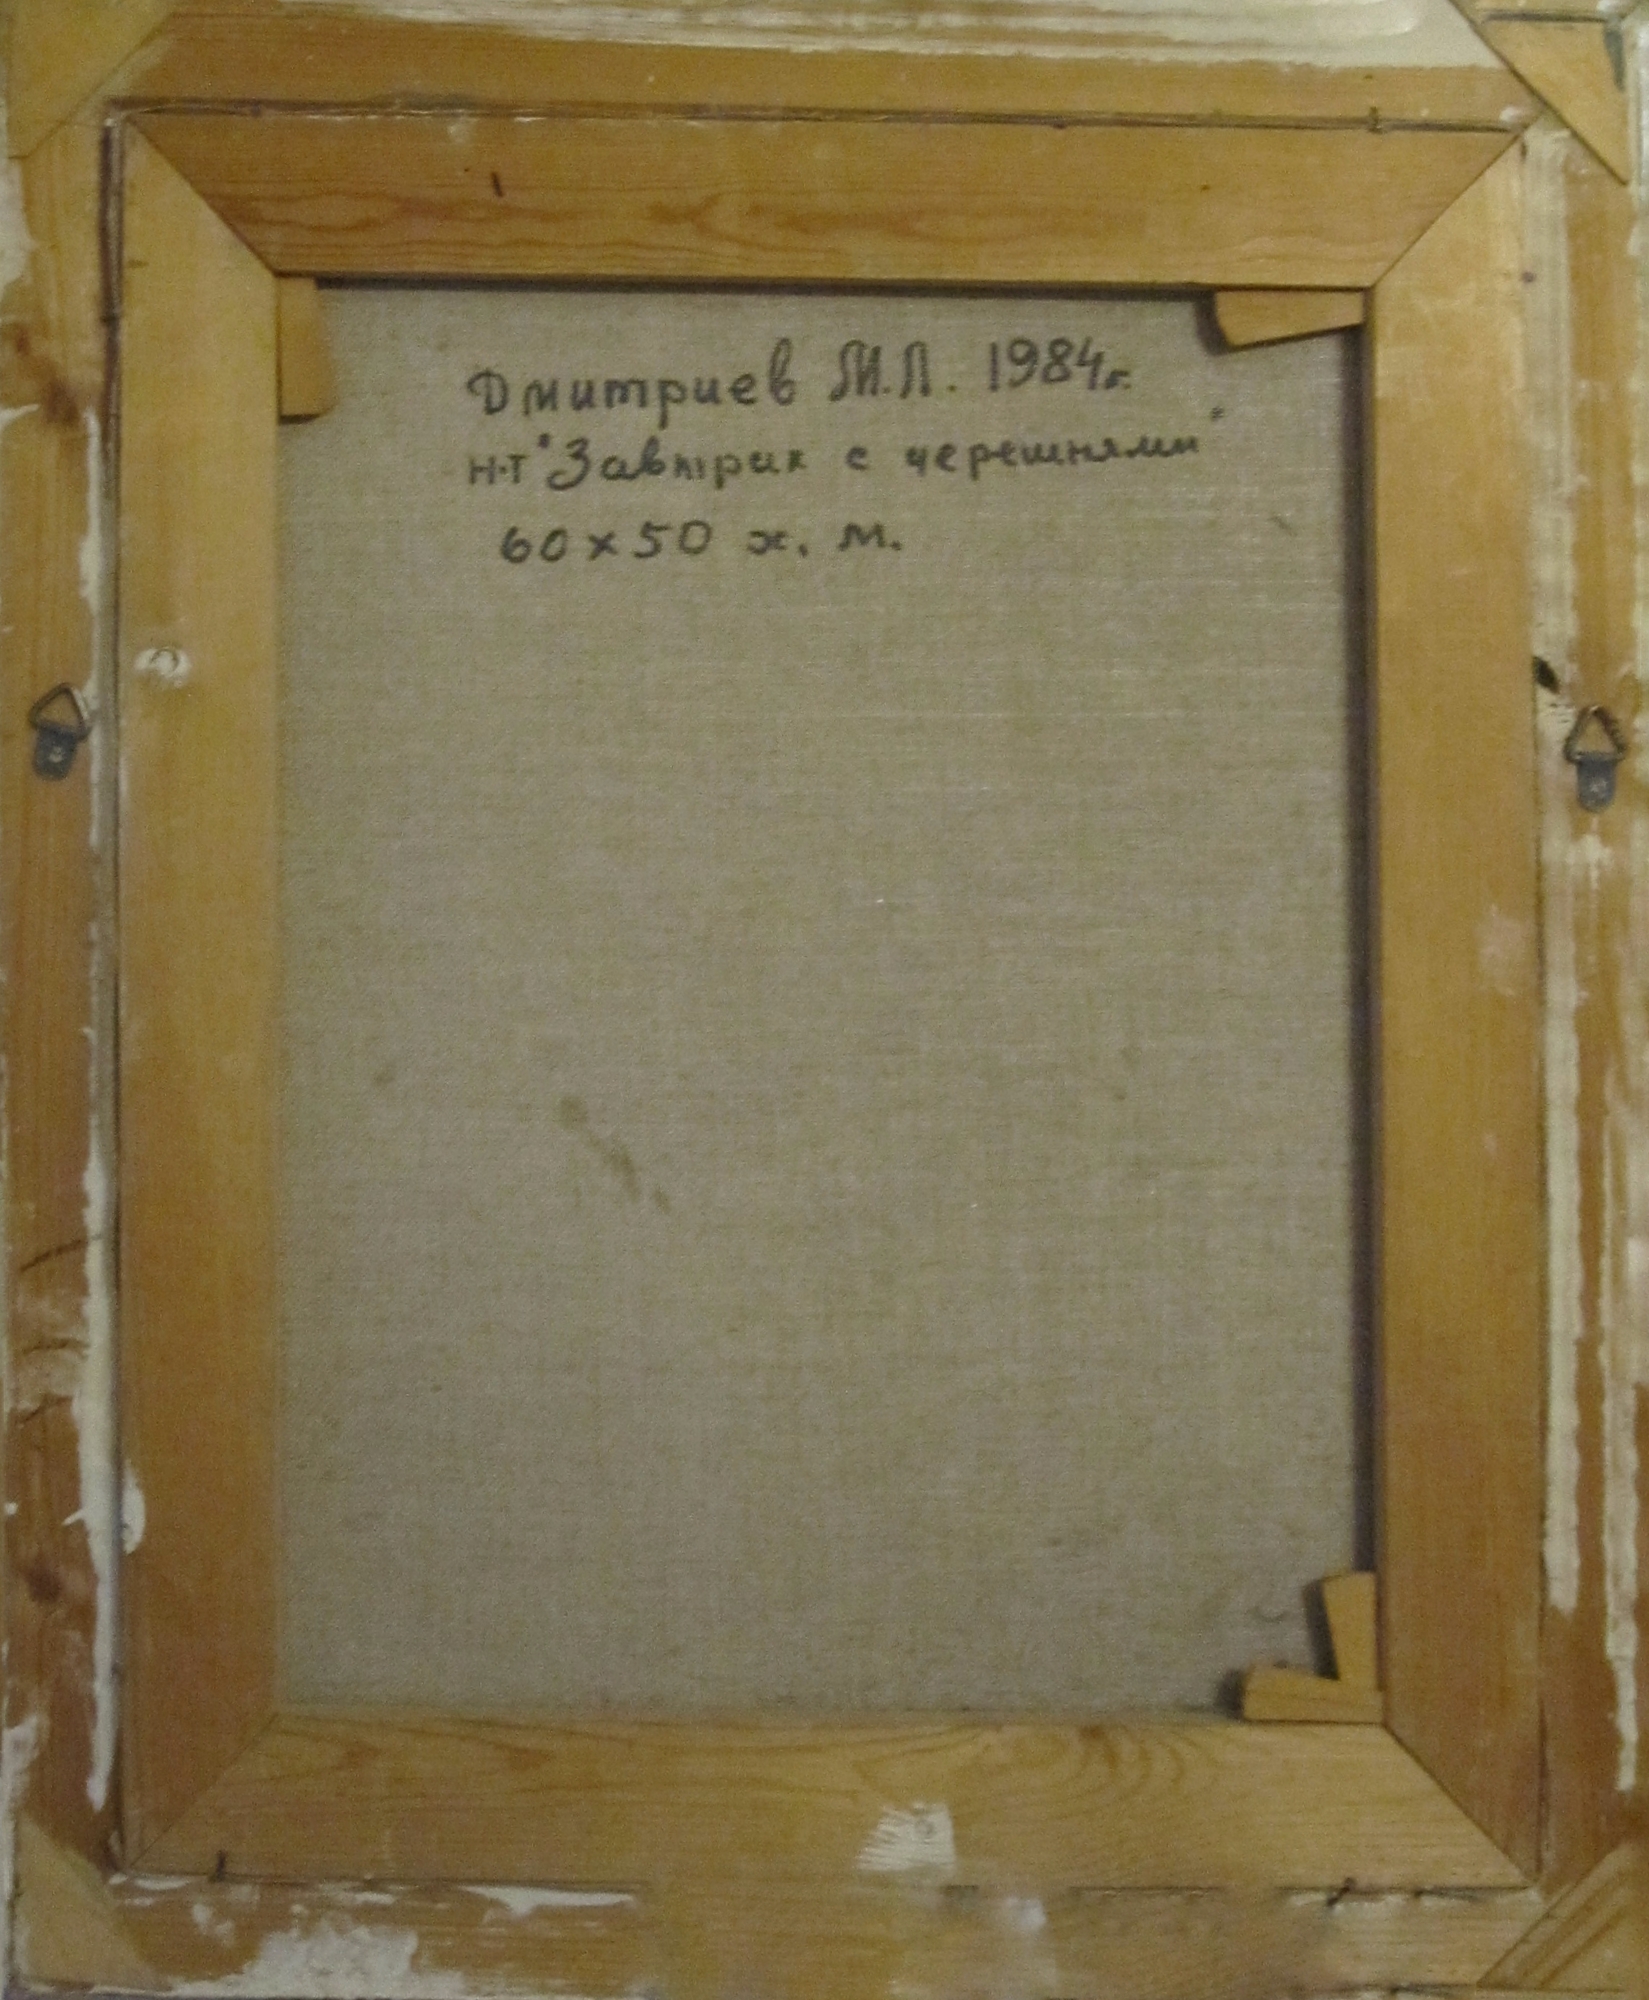 Дмитриев М.Л. 1984г.
н-т "Завтрак с черешнями"
60х50 х. м.